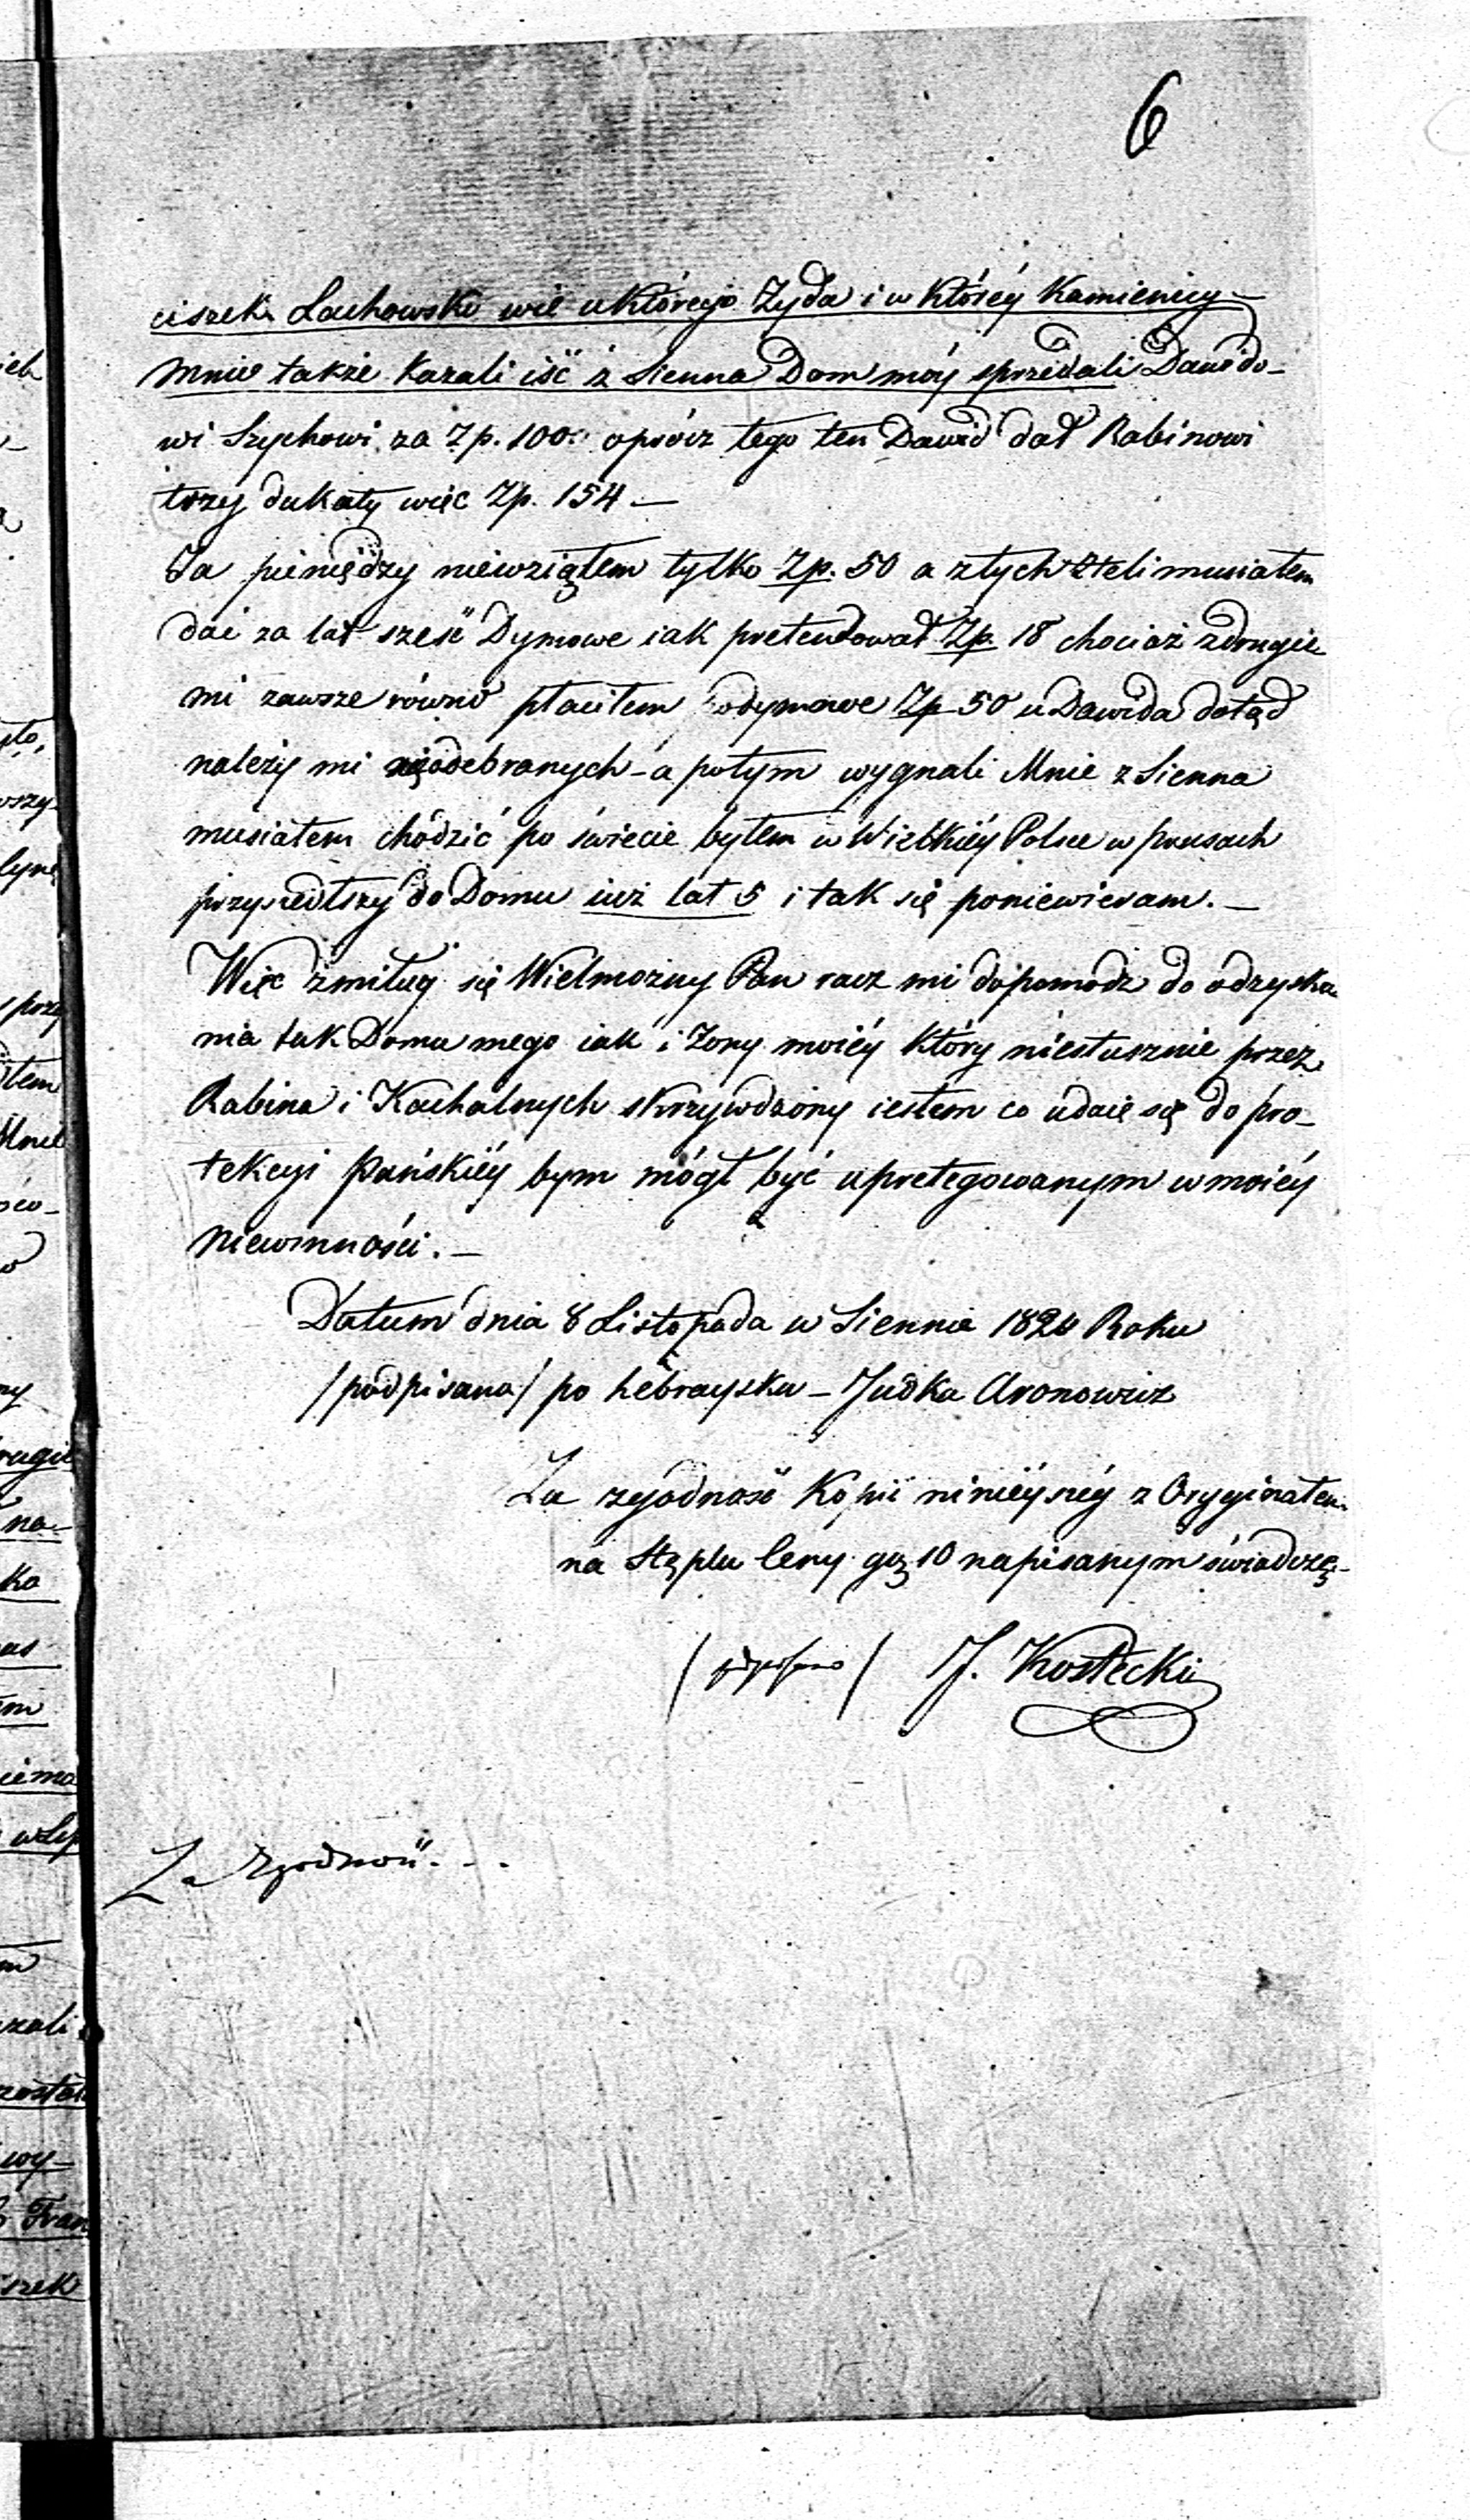 6
ciszek Lachowski wie u którego Żyda i w któréy Kamienicy
Mnie także kazali iść z Sienna Dom móy sprzedali Dawido-
wi Szychowi za Zp. 100. oprócz tego ten Dawid dał Rabinowi
trzy dukaty więc Zp. 154 —
Ja pieniędzy niewziąłem tylko Zp. 50 a z tych musiałem
dać za lat sześć Dymowe iak pretendował Zp. 18 chociaż zdrugie
mi zawsze równo płaciłem podymowe Zp 50 u Dawida dotąd
należy mi nieodebranych - a potym wygnali Mnie z Sienna
musiałem chodzić po świecie byłem w Wielkiéy Polsce w prusach
przyszedłszy do Domu iuż lat 5 i tak się poniewieram. —
Więc zmiłuy się Wielmożny Pan racz mi dopomodz do odzyska
nia tak Domu mego iak i Żony moiéy który niesłusznie przez
Rabina i Kachalnych skrzywdzony iestem co udaię się do pro-
tekcyi Pańskiéy bym mógł być uprotegowanym w moiéy
Niewinności. —
Datum dnia 8 Listopada w Siennie 1820 Roku
/podpisano/ po hebraysku - Judka Aronowicz
Za zgodność Kopii ninieyszéy z Oryginałem
na Stęplu Ceny gr. 10 napisanym świadczę -
/podpisano/ J. Kostecki
Za Zgodność. . .
ich
szy-
tem
Mnie
rugie
na-
ko
as
em
iema
zali
zostało
wy-
Fran
szek